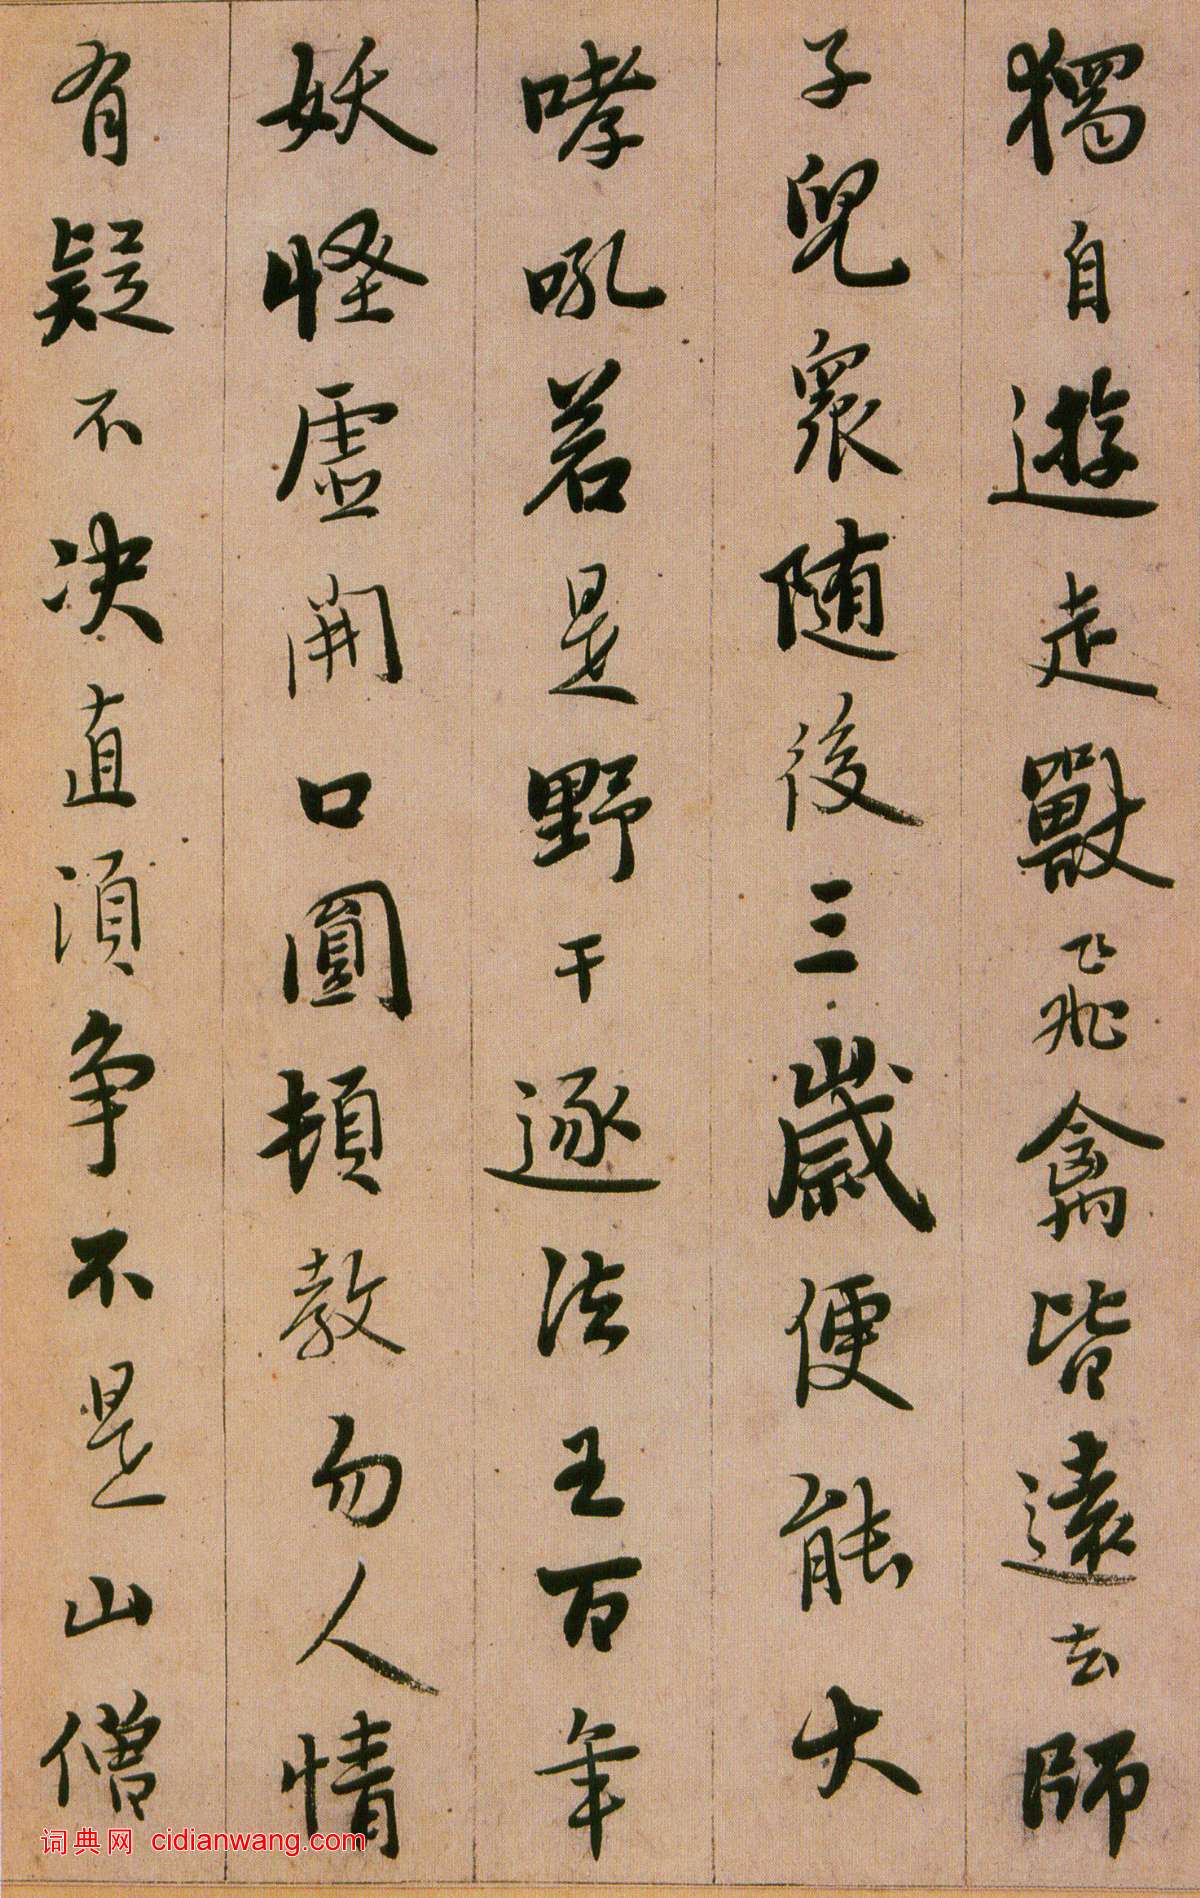 獨自遊走獸飛禽皆遠去師
子兒衆随後三歲便能大
哮吼若是野干逐法王百年
妖怪虛開口圓頓教勿人情
有疑不决直湏争不是山僧
词典网 cidianwang.com